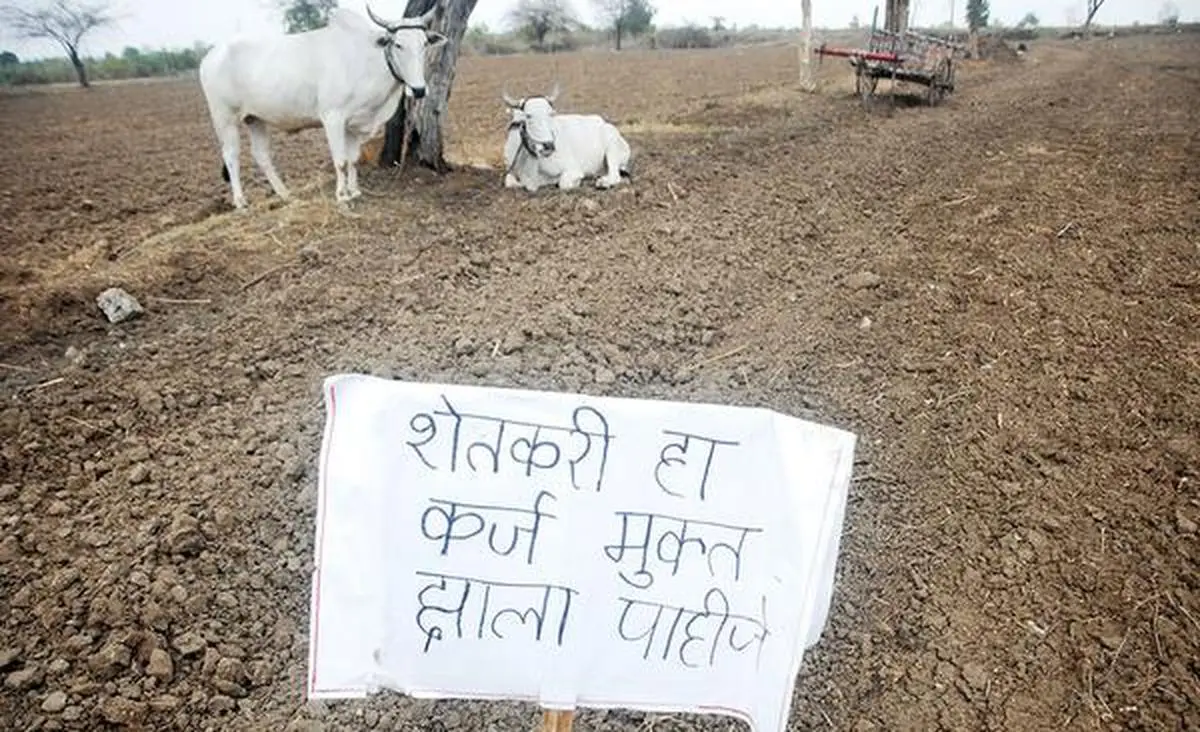 शेतकरी हा
कर्ज मुक्त
झाला पाहीजे